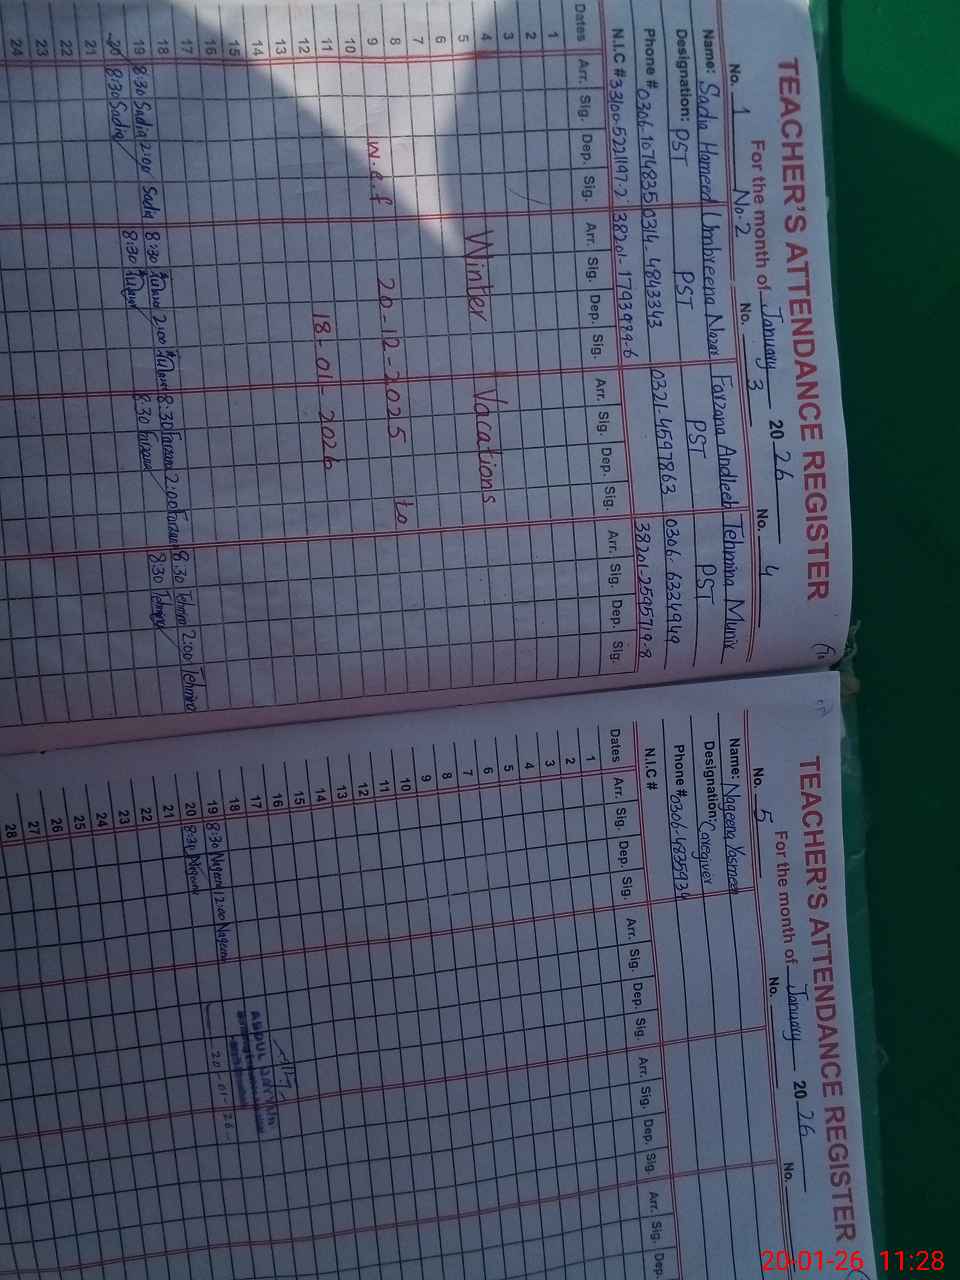 TEACHER'S ATTENDANCE REGISTER
For the month of January 2026
No. 1 No. 2 No. 3 No. 4
Name: Sadia Hameed Umbreena Nazar Farzana Andleeb Tehmina Munir
Designation: PST PST PST PST
Phone # 0306-1074835 0314-4843343 0321-4597863 0306-6324949
N.I.C # 33100-5221197-2 38201-1793994-6 38201-2595719-8
Dates Arr. Sig. Dep. Sig. Arr. Sig. Dep. Sig. Arr. Sig. Dep. Sig. Arr. Sig. Dep. Sig.
1
2
3
4 Winter Vacations
5
6
7
8
9 w.e.f 20-12-2025 to
10
11
12 18-01-2026
13
14
15
16
17
18
19 8:30 Sadia 2:00 Sadia 8:30 2:00 8:30 Farzana 2:00 Farzana 8:30 Tehmina 2:00 Tehmina
20 8:30 Sadia 8:30 8:30 Farzana 8:30 Tehmina
21
22
23
24
TEACHER'S ATTENDANCE REGISTER
For the month of January 2026
No. 5 No. No.
Name: Nageena Yasmeen
Designation: Caregiver
Phone # 0306-4835934
N.I.C #
Dates Arr. Sig. Dep. Sig. Arr. Sig. Dep. Sig. Arr. Sig. Dep. Sig. Arr. Sig. Dep.
1
2
3
4
5
6
7
8
9
10
11
12
13
14
15
16
17
18
19 8:30 Nageena 12:00 Nageena
20 8:30 Nageena
ABDUL
20-01-26
21
22
23
24
25
26
27
28
20-01-26 11:28